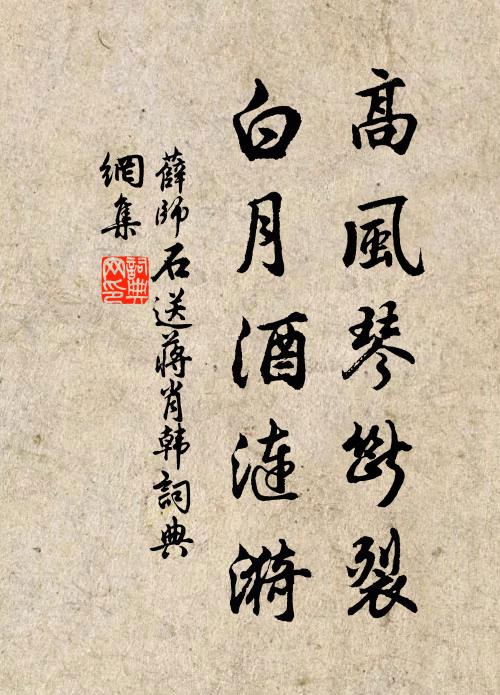 高風琴斷裂
白月酒漣漪
薛師石送蔣肖韩詞典
網集
詞典網印